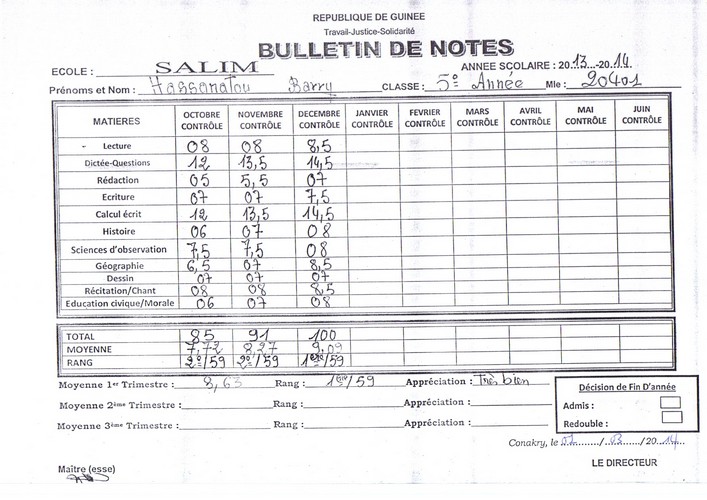 REPUBLIQUE DE GUINEE
Travail-Justice-Solidarité
BULLETIN DE NOTES
ECOLE : SALIM ANNEE SCOLAIRE : 2013-2014
Prénoms et Nom : Hassanatou Barry CLASSE : 5e Année Mle : 20401
MATIERES OCTOBRE CONTRÔLE NOVEMBRE CONTRÔLE DECEMBRE CONTRÔLE JANVIER CONTRÔLE FEVRIER CONTRÔLE MARS CONTRÔLE AVRIL CONTRÔLE MAI CONTRÔLE JUIN CONTRÔLE
- Lecture 08 08 8,5
Dictée-Questions 12 13,5 14,5
Rédaction 05 5,5 07
Ecriture 07 07 7,5
Calcul écrit 12 13,5 14,5
Histoire 06 07 08
Sciences d'observation 7,5 7,5 08
Géographie 6,5 07 8,5
Dessin 07 07 07
Récitation/Chant 08 08 8,5
Education civique/Morale 06 07 08
TOTAL 85 91 100
MOYENNE 7,72 8,27 9,09
RANG 2e/59 2e/59 1ère/59
Moyenne 1er Trimestre : 8,63 Rang : 1ère/59 Appréciation : Très bien
Moyenne 2ème Trimestre : Rang : Appréciation :
Moyenne 3ème Trimestre : Rang : Appréciation :
Décision de Fin D'année
Admis :
Redouble :
Conakry, le / /2014
Maître (esse) LE DIRECTEUR